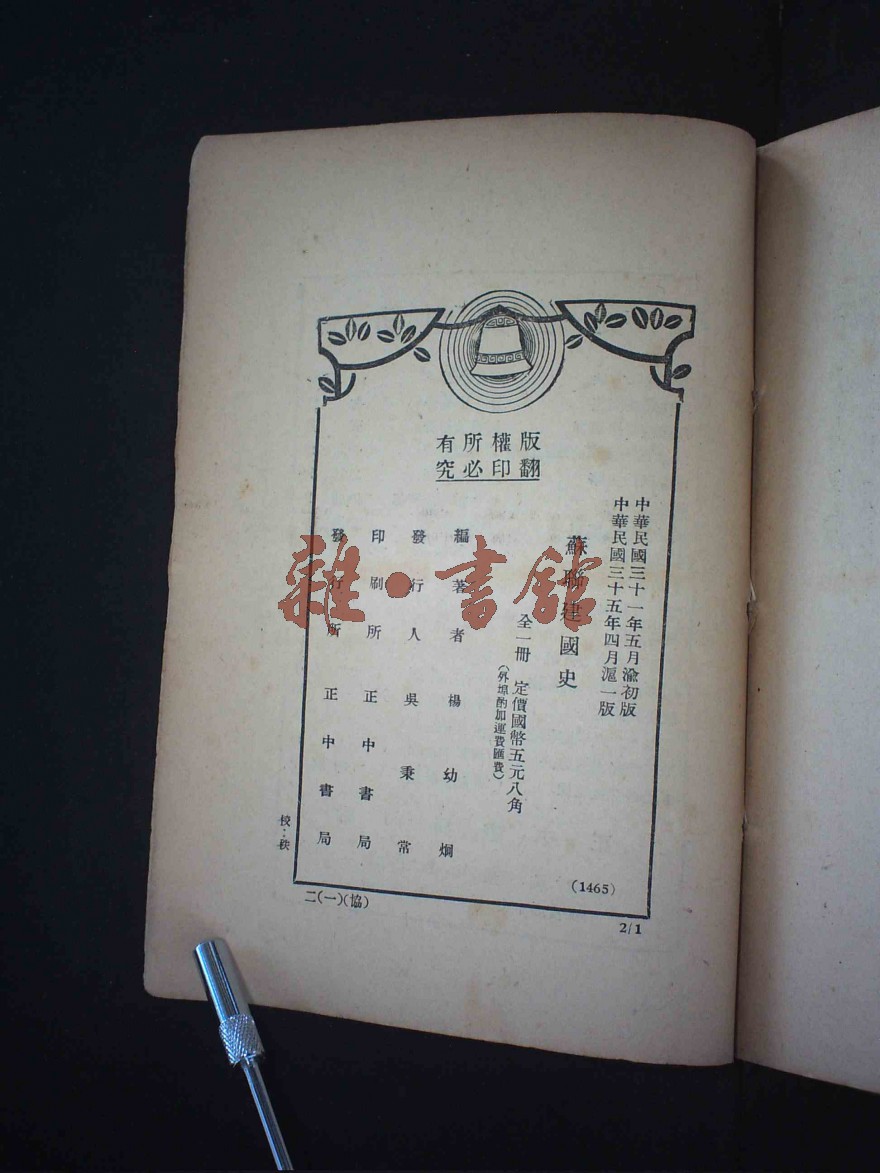 版權所有
翻印必究
中華民國三十一年五月渝初版
中華民國三十五年四月滬一版
蘇聯建國史
全一冊 定價國幣五元八角
(外埠酌加運費匯費)
編著者 楊幼炯
發行人 吳秉常
印刷所 正中書局
發行所 正中書局
校:秩
(1465)
二(一)(協)
2/1
雜·書館